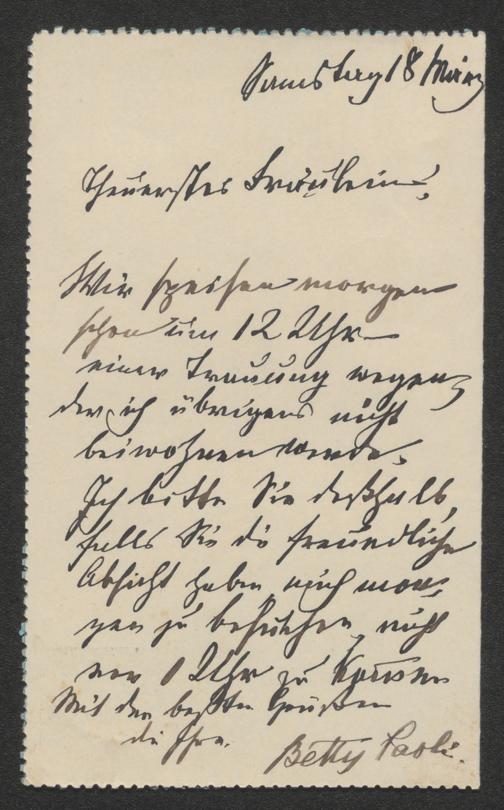 Samstag 18 März
Theuerstes Fräulein,
Wir speisen morgen
schon um 12 Uhr
einer Trauung wegen,
der ich übrigens nicht
beiwohnen werde.
Ich bitte Sie deßhalb,
falls Sie die freundliche
Absicht haben mich mor-
gen zu besuchen, nicht
vor 1 Uhr zu kommen.
Mit den besten Grüßen
die Ihre.
Betty Paoli.